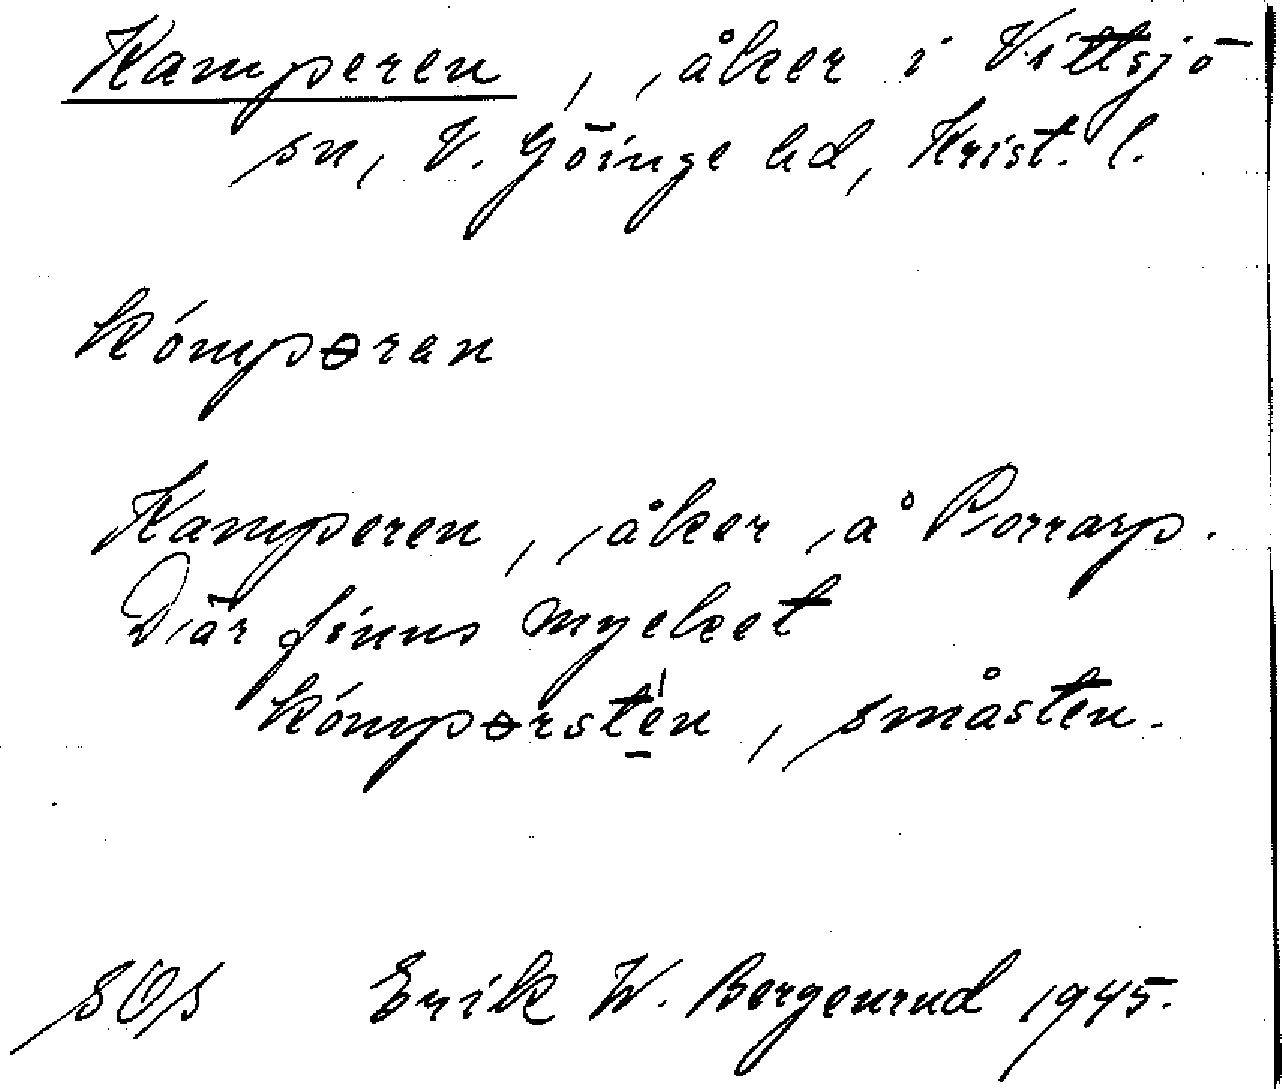 Kamperen, åker i Vittsjö
sn, V. Göinge hd, Krist. l.
kómpɵran
Kamperen, åker å Porrarp.
Där finns mycket
kómpɵrstèn, småsten.
SOS Erik W. Bergenrud 1945.